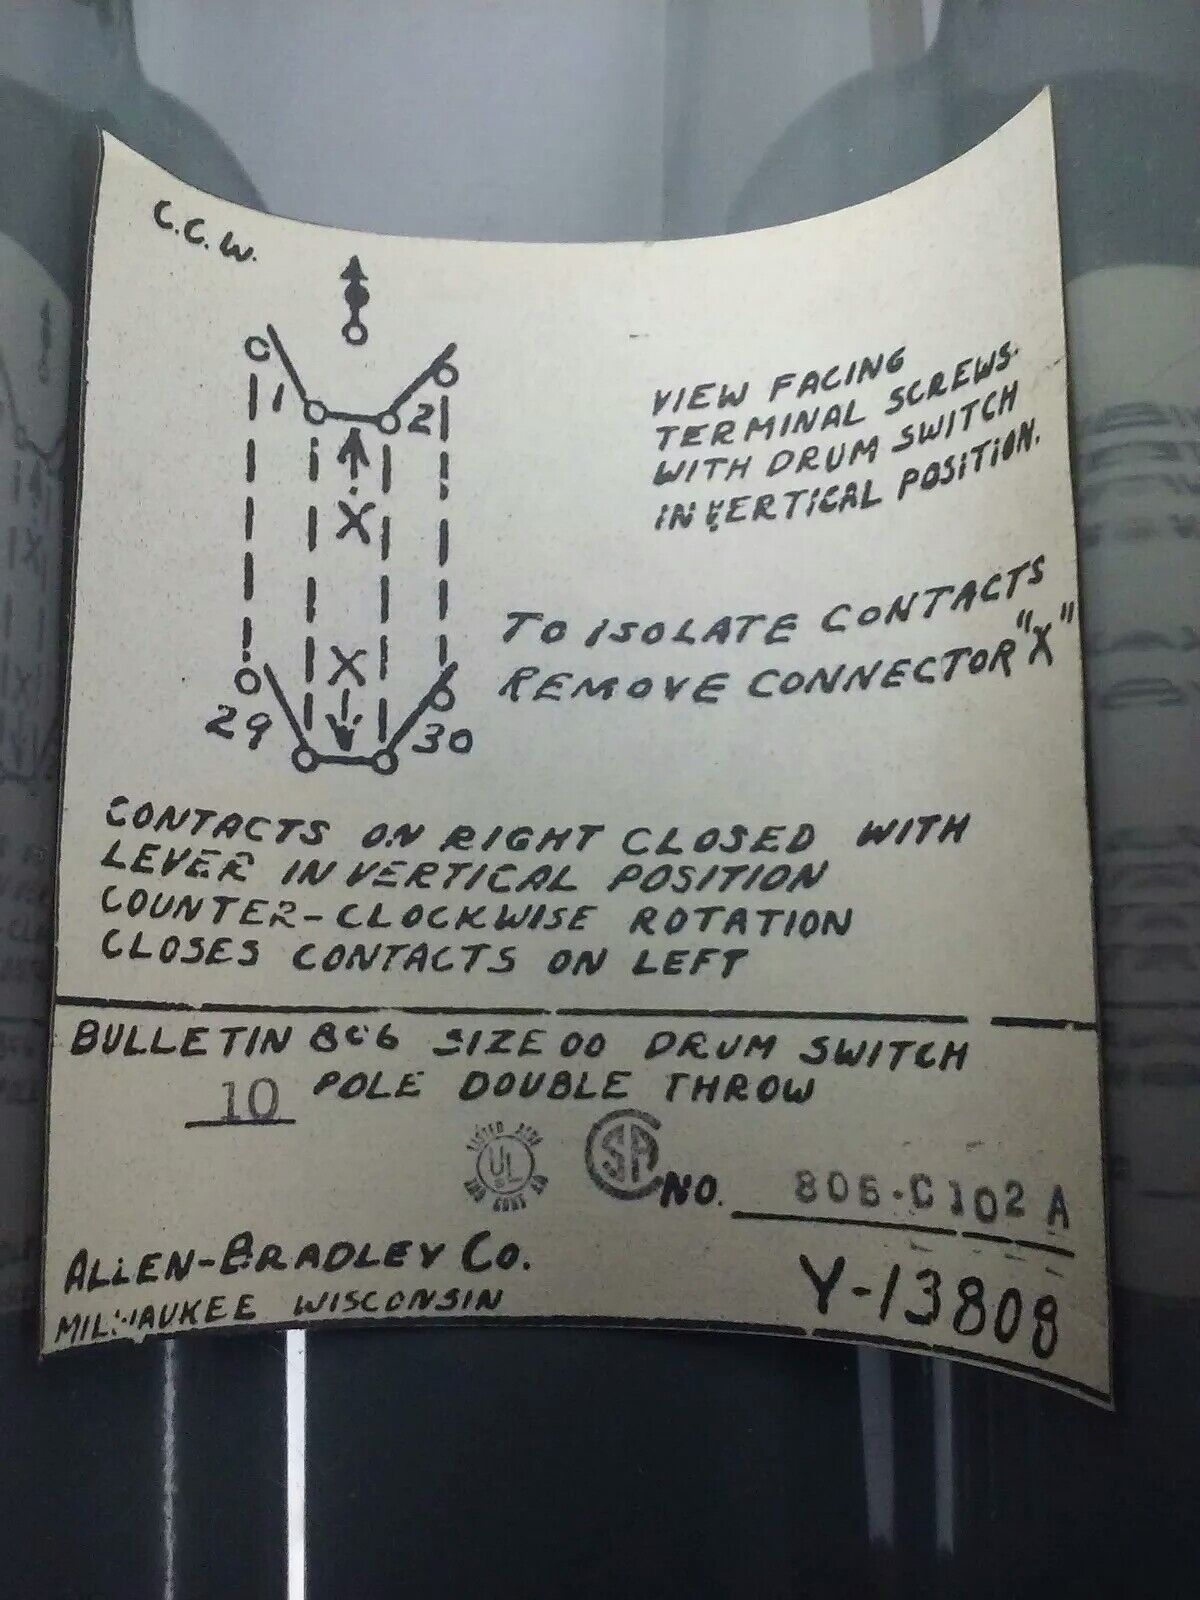 C.C.W.
1 2
X
X
29 30
VIEW FACING
TERMINAL SCREWS.
WITH DRUM SWITCH
IN VERTICAL POSITION.
TO ISOLATE CONTACTS
REMOVE CONNECTOR "X"
CONTACTS ON RIGHT CLOSED WITH
LEVER IN VERTICAL POSITION
COUNTER-CLOCKWISE ROTATION
CLOSES CONTACTS ON LEFT
BULLETIN 806 SIZE 00 DRUM SWITCH
10 POLE DOUBLE THROW
UL
SA NO. 806-C102A
ALLEN-BRADLEY CO.
MILWAUKEE WISCONSIN
Y-13808